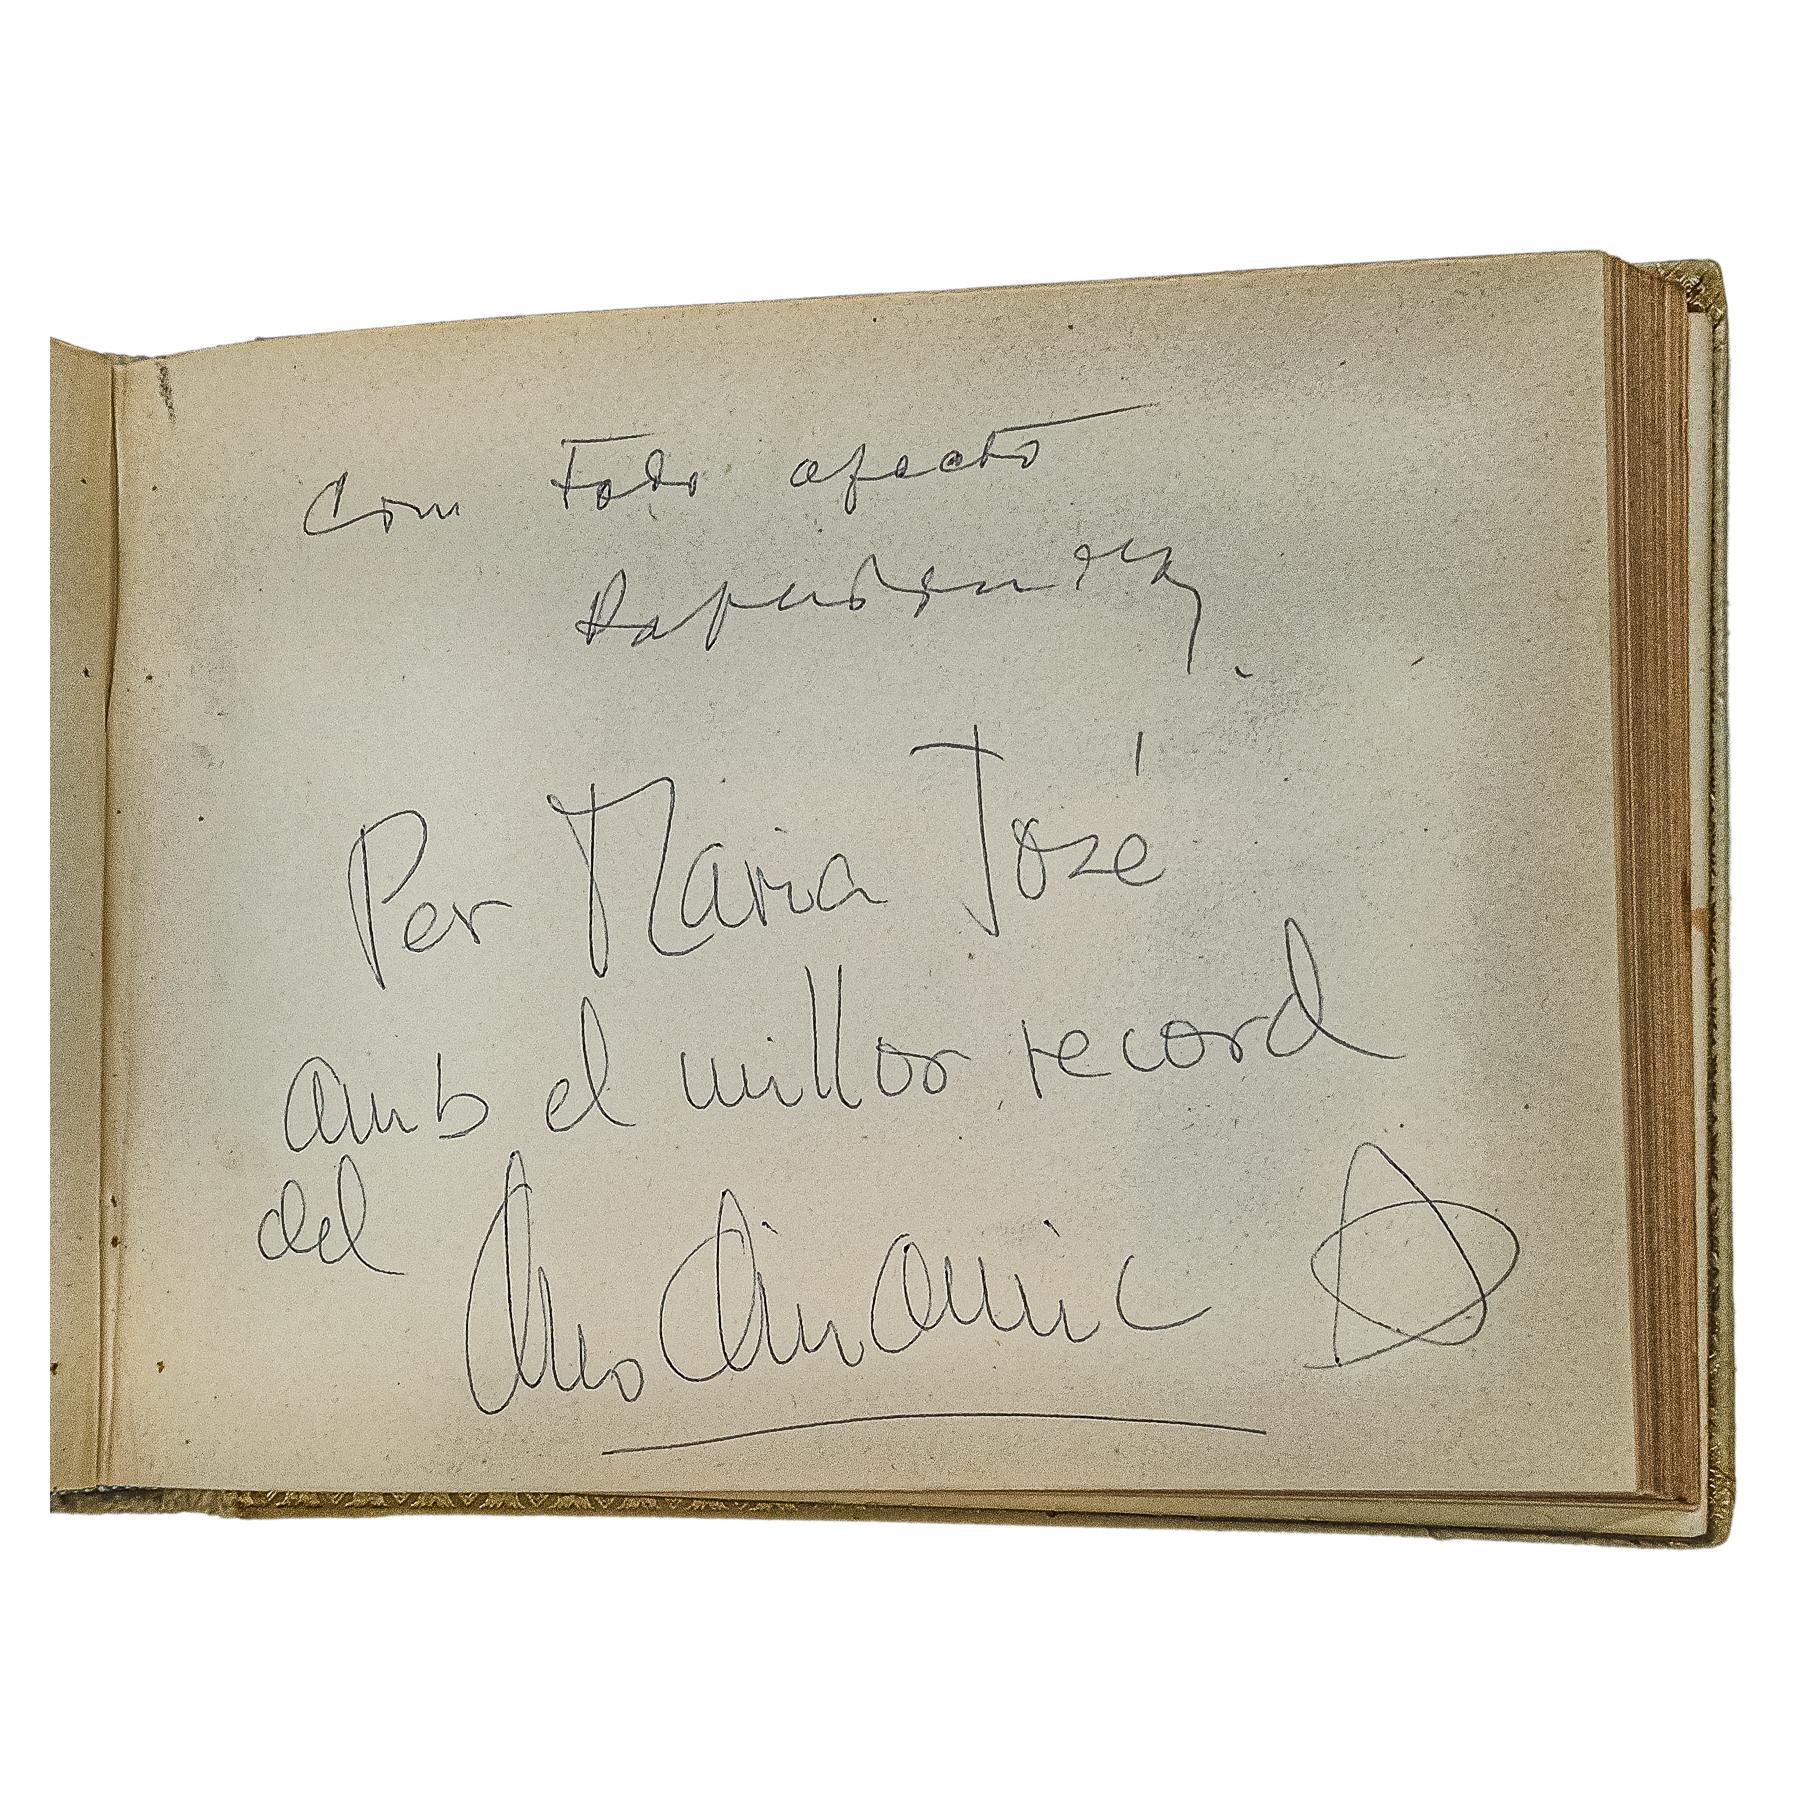 Con todo afecto
Per Maria José
amb el millor record
del Duo Dinamic